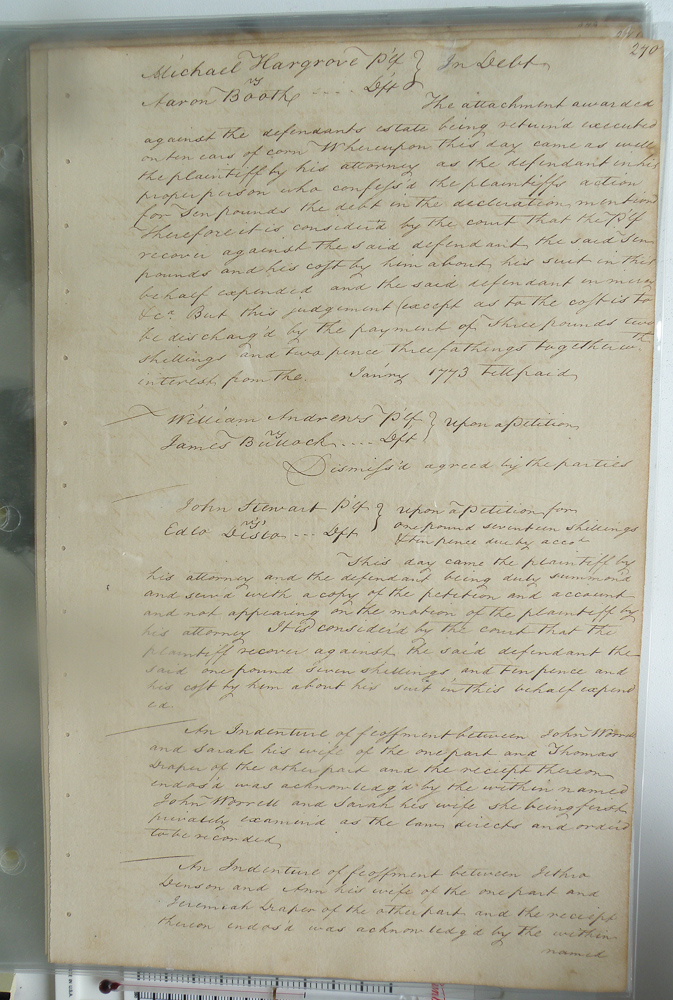 270
Michael Hargrove Pltf } In Debt
vs
Aaron Booth .... Dft
The attachment awarded
against the defendants estate being return'd executed
on ten ears of corn Whereupon this day came as well
the plaintiff by his attorney as the defendant in his
proper person who confess'd the plaintiffs action
for Ten pounds the debt in the declaration mention
Therefore it is consider'd by the court that the Pltf
recover against the said defendant the said Ten
pounds and his cost by him about his suit in this
behalf expended and the said defendant in mercy
&ca. But this judgement (except as to the cost is to
be discharg'd by the payment of three pounds two
shillings and two pence three fathings together wth
interest from the Janry 1773 till paid
William Andrews Pltf } upon a Petition
vs
James Bullock .... Dft
Dismiss'd agreed by the parties
John Stewart Pltf } upon a Petition for
vs
one pound seventeen shillings
Dft
& ten pence due by accot
This day came the plaintiff by
his attorney and the defendant being duly summond
and serv'd with a copy of the petition and account
and not appearing on the motion of the plaintiff by
his attorney It is consider'd by the court that the
plaintiff recover against the said defendant the
said one pound seven shillings and ten pence and
his cost by him about his suit in this behalf expend
ed
An Indenture of feoffment between John Worrell
and Sarah his wife of the one part and Thomas
Draper of the other part and the receipt thereon
endors'd was acknowledg'd by the within named
John Worrell and Sarah his wife she being first
privately examin'd as the law directs and order'd
to be recorded
An Indenture of feoffment between Jethro
Denson and Ann his wife of the one part and
Jeremiah Draper of the other part and the receipt
thereon endos'd was acknowledg'd by the within
named